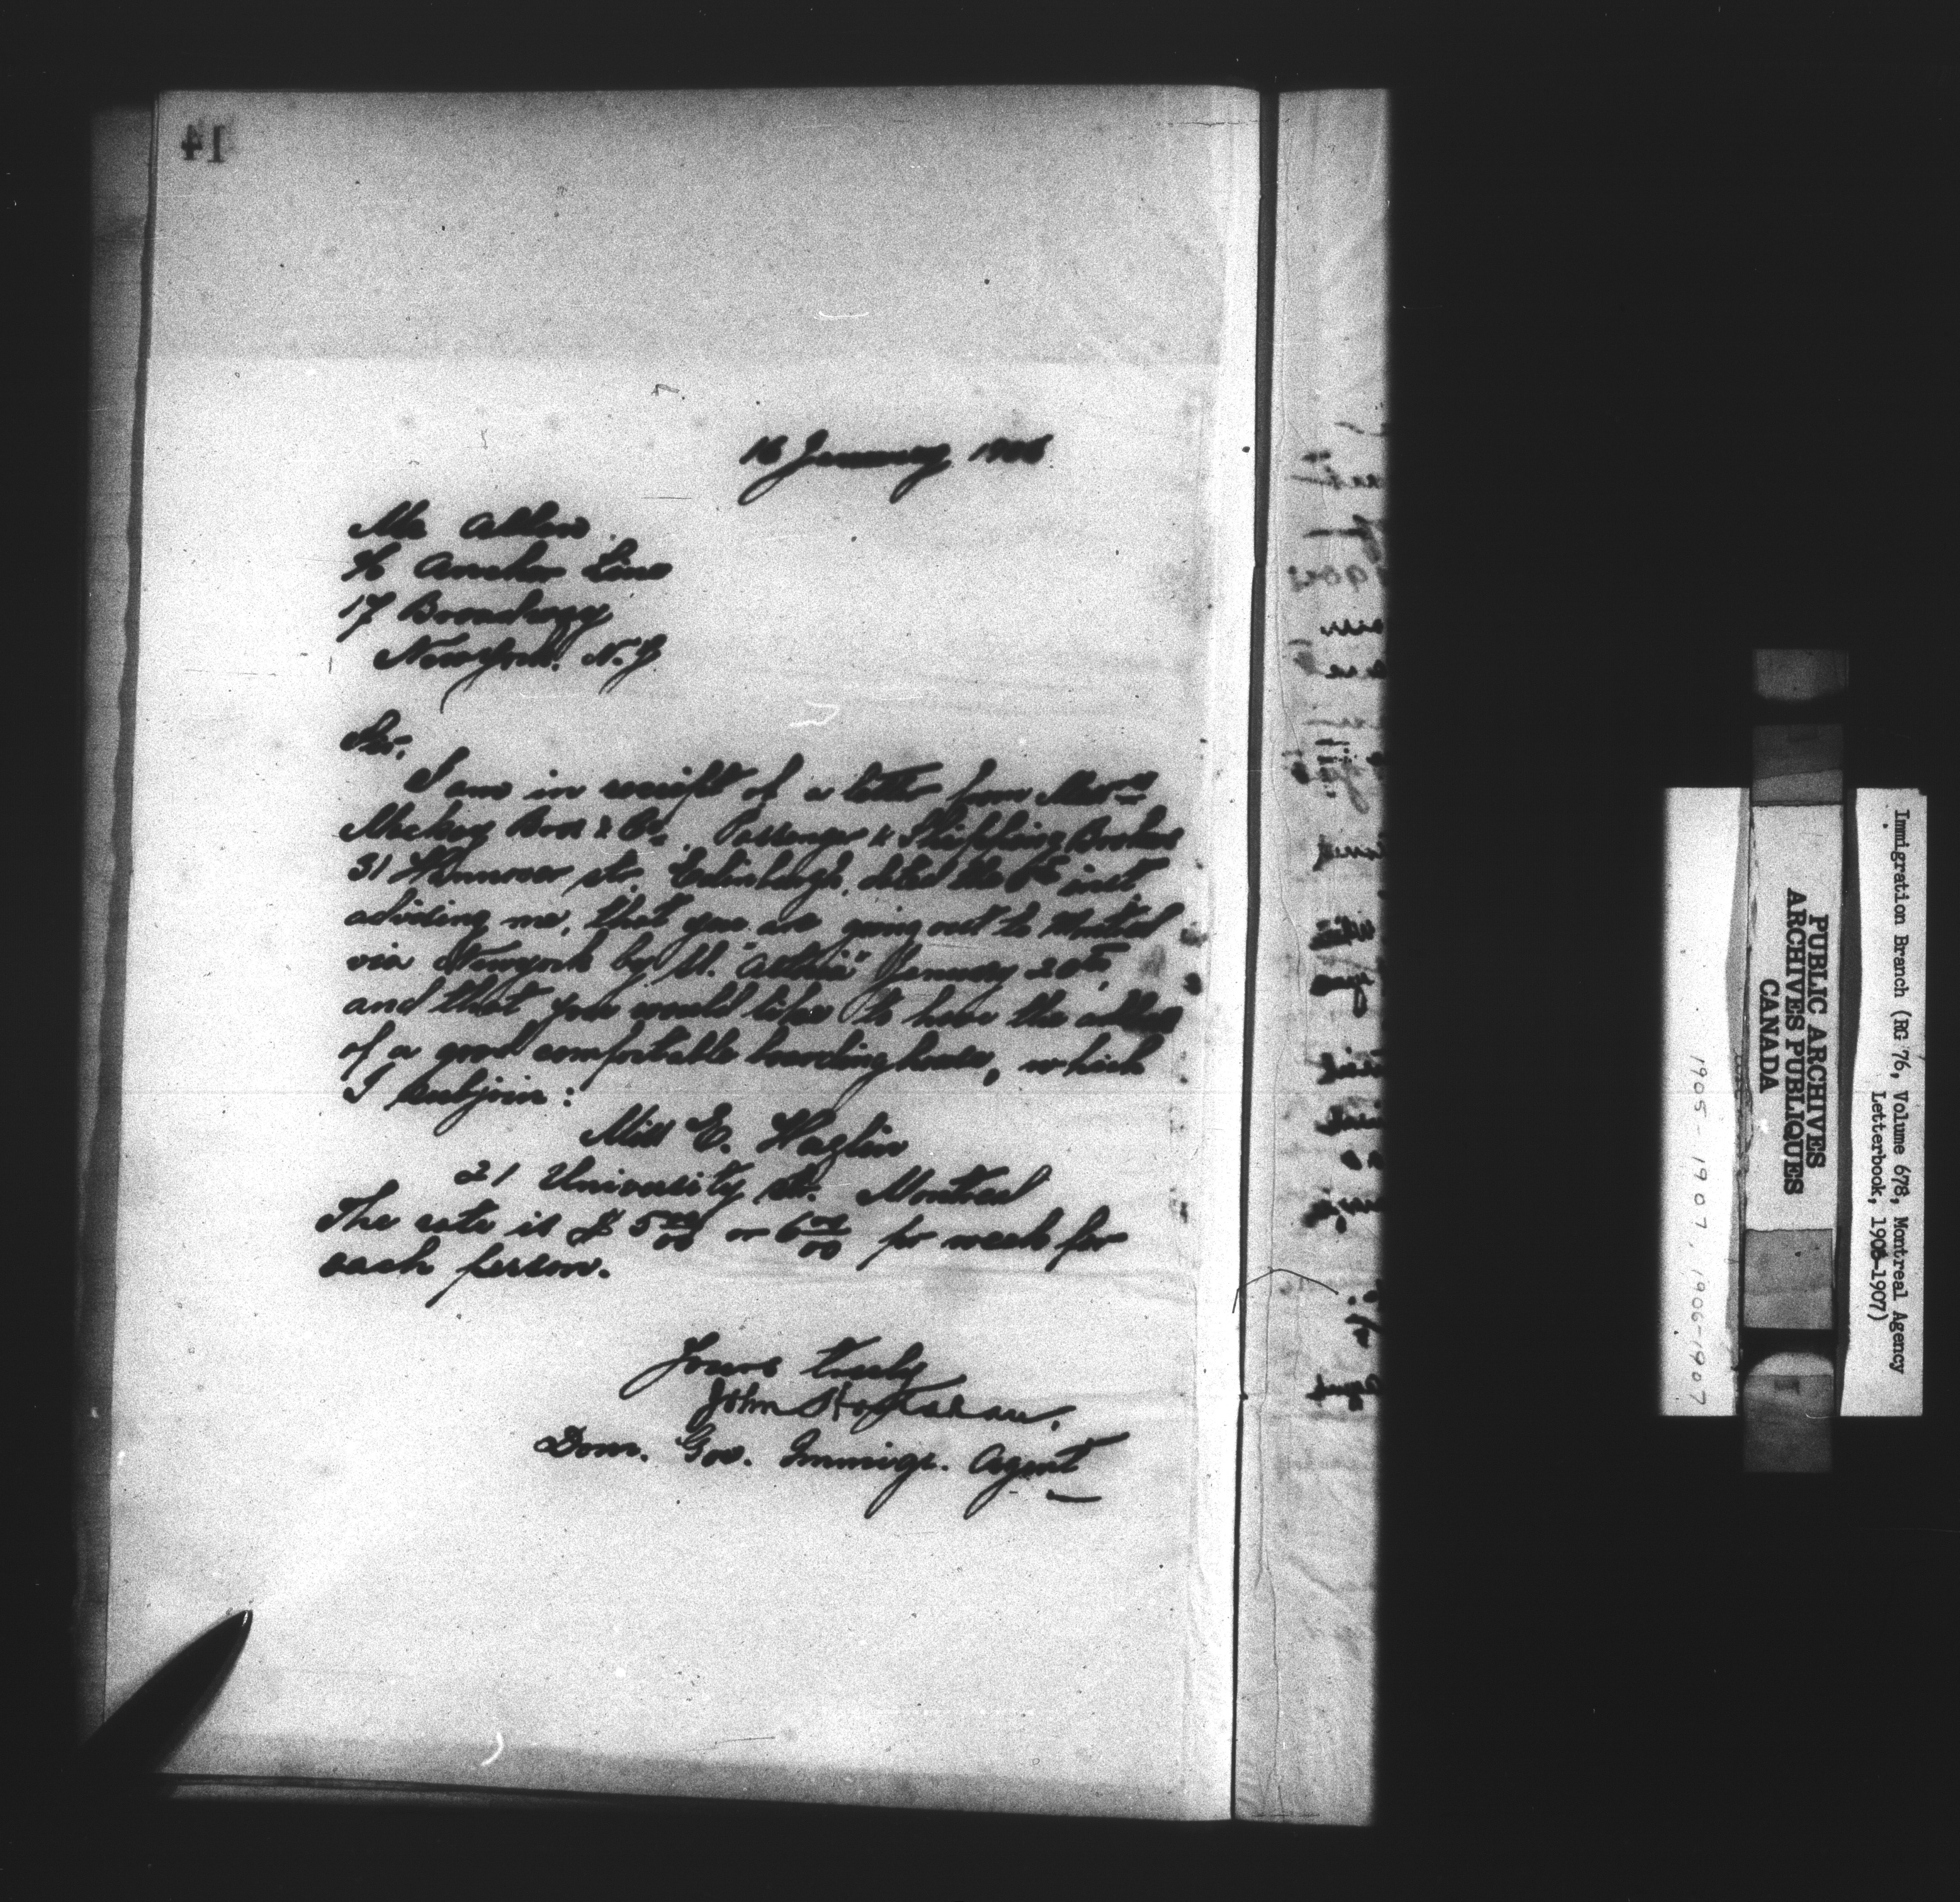 14
16 January 1906
Mr Allan
c/o Anchor Line
17 Broadway
Newyork. N.Y
Sir,
I am in receipt of a letter from Messrs
Mackay Bros & Co. Passenger & Shipping Brokers
31 Hannover str. Edinburgh, dated the 6th inst,
advising me, that you are going out to Montreal
via Newyork by St. "Astoria" January 20th,
and that you would like to have the address
of a good comfortable boardinghouse, which
I subjoin:
Miss E. Hazlin
21 University str. Montreal
The rate is $ 5 00/00 or 6 00/00 pr week for
each person.
Yours truly
John
Dom. Gov. Immigr. Agent
Immigration Branch (RG 76, Volume 678, Montreal Agency
Letterbook, 1906-1907)
PUBLIC ARCHIVES
ARCHIVES PUBLIQUES
CANADA
1905-1907, 1906-1907